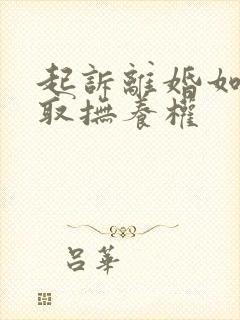 起訴離婚如
取撫養權
呂華